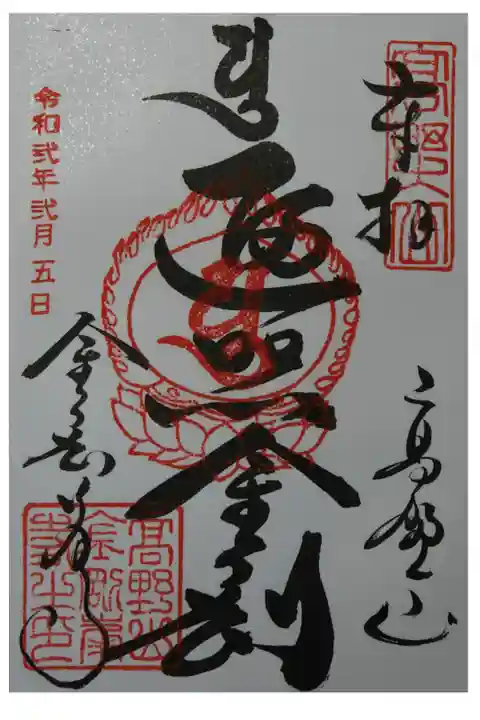 奉拝
高野山
遍照金剛
令和弐年弐月五日
金剛峯寺
高野山
金剛峯